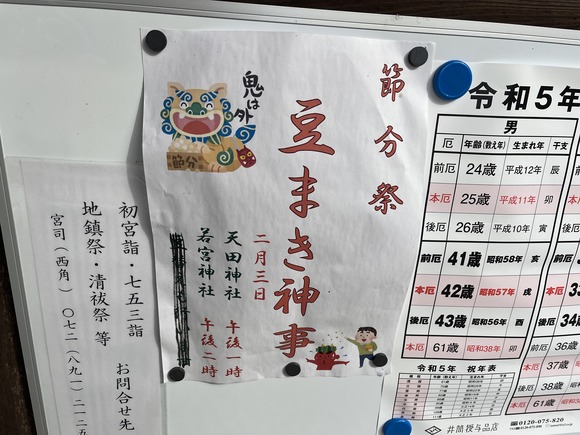 節分祭
鬼は外
節分
豆まき神事
二月三日
天田神社 午後一時
若宮神社 午後二時
初宮詣・七五三詣 お問合せ先
地鎮祭・清祓祭 等
宮司(西角) 〇七二(八九一)二一二五
令和5年
男
厄 年齢(数え年) 生まれ年 干支
前厄 24歳 平成12年 辰
本厄 25歳 平成11年 卯
後厄 26歳 平成10年 寅
前厄 41歳 昭和58年 亥
本厄 42歳 昭和57年 戌
後厄 43歳 昭和56年 酉
本厄 61歳 昭和38年 卯
厄
前厄
本厄
後厄
前厄 36歳
本厄 37歳
後厄 38歳
本厄 61歳
令和5年 祝年表
井筒授与品店
0120-075-820